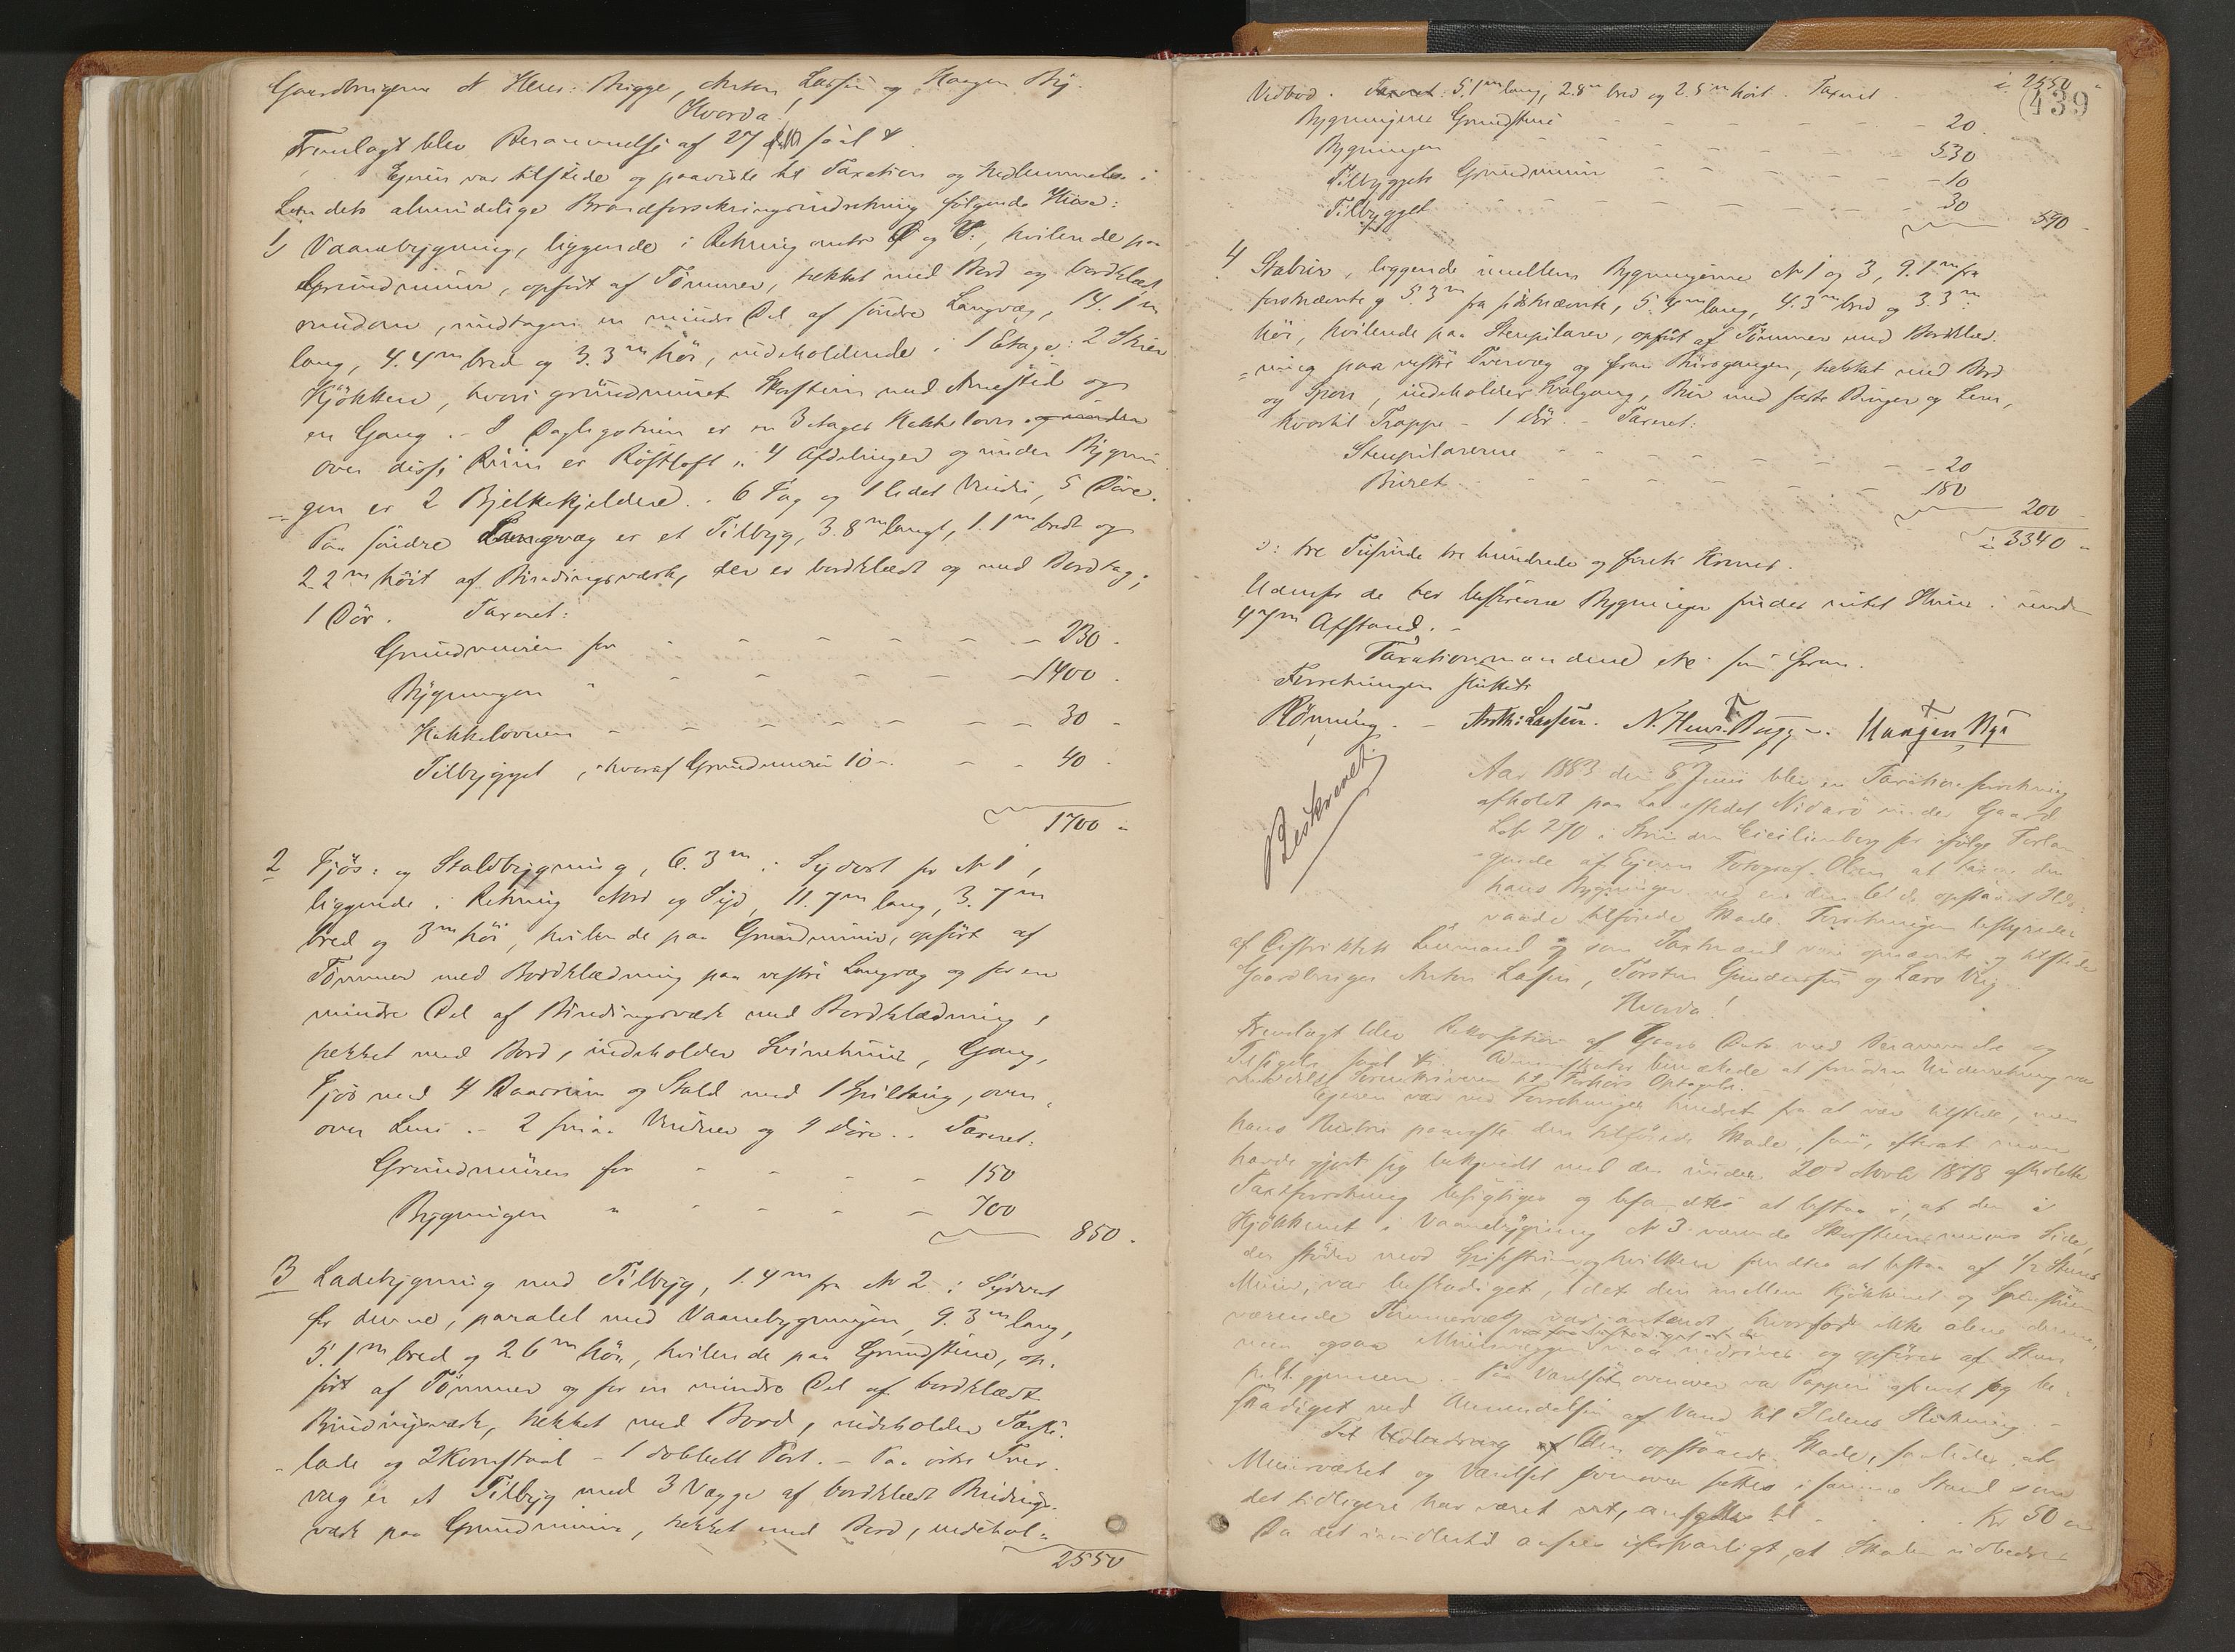 Gaardbrugerne N. Hens: Bugge, Anton Lassen og Haagen By.
Hvorda!
Fremlagt blev Berammelse af 27
Ejeren var tilstede og paaviste til Taxation og Indlemmelse i
Landets almindelige Brandforsikringsindretning følgende Huse:
1, Vaanebygning, liggende i Retning imod Ø og V:, hvilende paa
Grundmuur, opført af Tømmer, tækket med Bord og bordklædt
rundom, undtagen en mindre Del af søndre Langvæg, 14.1 m
lang, 4.4 m bred og 3.3 m høi, indeholdende i 1 Etage: 2 Stuer
Kjøkken, hvori grundmuret Skorsteen med Arnested og
en Gang. - I Dagligstuen er en 3 etages Kakkelovn. og under
over disse Rum er Røstloft i 4 Afdelinger og under Bygnin-
-gen er 2 Bjelkekjeldere. 6 Fag og 1 lidet Vindu, 5 Døre.
Paa søndre Langvæg er et Tilbyg, 3.8 m langt, 1.1 m bredt og
2.2 m høit af Bindingsværk, der er bordklædt og med Bordtag;
1 Dør. Taxeret:
Grundmuren for - - - - - 230.
Bygningen " - - - - - 1400.
Kakkelovnen - - - - - 30 -
Tilbygget, hvoraf Grundmuren 10 - - - 40.
1700 -
2 Fjøs- og Staldbygning, 6.3 m i Sydost for No 1,
liggende i Retning Nord og Syd, 11.7 m lang, 3.7 m
bred og 3 m høi, hvilende paa Grundmuur, opført af
Tømmer med Bordklædning paa vestre Langvæg og for en
mindre Del af Bindingsværk med Bordklædning,
tækket med Bord, indeholder Svinehuus, Gang,
Fjøs med 4 Baasrum og Stald med 1 Spiltaug, oven-
over Lem. - 2 smaa Vinduer og 4 Døre. - Taxeret:
Grundmuren for - - - - 150
Bygningen " - - - - 700
850.
3 Ladebygning med Tilbyg, 1.4 m fra No 2 i Sydvest
for denne, paralel med Vaanebygningen, 9.3 m lang,
5.1 m bred og 2.6 m høi, hvilende paa Grundstene, op-
ført af Tømmer og for en mindre Del af bordklædt
Bindingsværk, tækket med Bord, indeholder Tærske-
-lade og 2 Kornstaal - 1 dobbelt Port. - Paa østre Tver-
væg er et Tilbyg med 3 Vægge af bordklædt Bindings-
værk paa Grundmuur, tækket med Bord, indehol-
2550
439
Vedbod. Taxeret: 5.1 m lang, 2.8 m bred og 2.5 m høit. Taxeret. 2550 -
Bygningens Grundstene - - - - - 20.
Bygningen - - - - - 530
Tilbyggets Grundmuur - - - - - 10
Tilbygget - - - - - 30
590 -
4 Stabur, liggende imellem Bygningerne No 1 og 3, 9.1 m fra
førstnævnte og 5.3 m fra sidstnævnte, 5.4 m lang, 4.3 m bred og 3.3 m
høi, hvilende paa Stenpilarer, opført af Tømmer med Bordklæd-
-ning paa vestre Tvervæg og foran Bursgangen, tækket med Bord
og Spon, indeholder Svalgang, Bur med faste Binger og Lem,
hvortil Trappe - 1 Dør. - Taxeret:
Stenpilarerne - - - - - 20
Buret - - - - - 180
200 -
3340 -
ↄ: tre Tusinde tre hundrede og firti Kroner.
Udenfor de her beskrevne Bygninger findes intet Huus i under
47 m Afstand. -
Taxationsmændene
Forretningen sluttet
Rønning. - Anth: Lassen. N. Hens. Bugge. Haagen By
Beskrevet
Aar 1883 den 8 Juni blev en Taxationsforretning
afholdt paa Løkkestedet Nidarø under Gaard
Lob 270 i Strinden Ceciliienberg for ifølge Forlan-
-gende af Ejeren Fotograf Olsen at taxere den
hans Bygninger ved en den 6' ds opstaaet Ilds-
vaade tilføiede Skade. Forretningen bestyredes
af Distriktets Lensmand og som Taxtmænd vare opnævnte og tilstede
Gaardbruger Anton Lassen, Torsten Gundersen og Lars Vig.
Hvorda!
Fremlagt blev Rekvisition af Gaars Dato med Berammelse og
Ejeren var ved Forretninger hindret fra at være tilstede, men
hans Hustru paaviste den tilføiede Skade, som, efterat man
havde gjort sig bekjendt med den under 20de Novbr 1878 afholdte
Taxtforretning besigtiges og befandtes at bestaa i, at den i
Kjøkkenet i Vaanebygning No 3 værende Skorsteensmuurs Side,
der støder mod Spisestuen og hvilken fandtes at bestaa af 1/2 Steens
Muur, var beskadiget, idet den mellem Kjøkkenet og Spisestuen
værende Tømmervæg var antændt, hvorfor ikke alene denne,
men ogsaa Muurvæggen maa nedrives og opføres af Steen
skadiget ved Anvendelsen af Vand til Ildens Slukning. -
Til Udbedring af den opstaaede Skade, saaledes at
Muurværket og Værelset ovenover sættes i samme Stand som
det tidligere har været i, ansættes til - - - Kr 50
Da det imidlertid ansees uforsvarligt, at Skaden udbedres